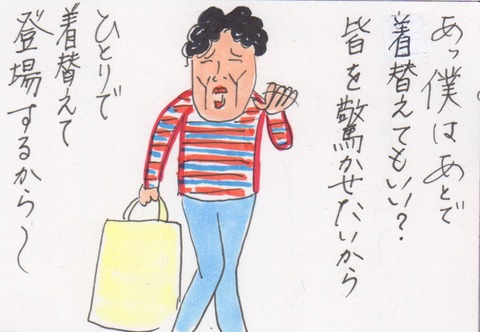 あっ僕はあとで
着替えてもいい?
皆を驚かせたいから
ひとりで
着替えて
登場するから〜